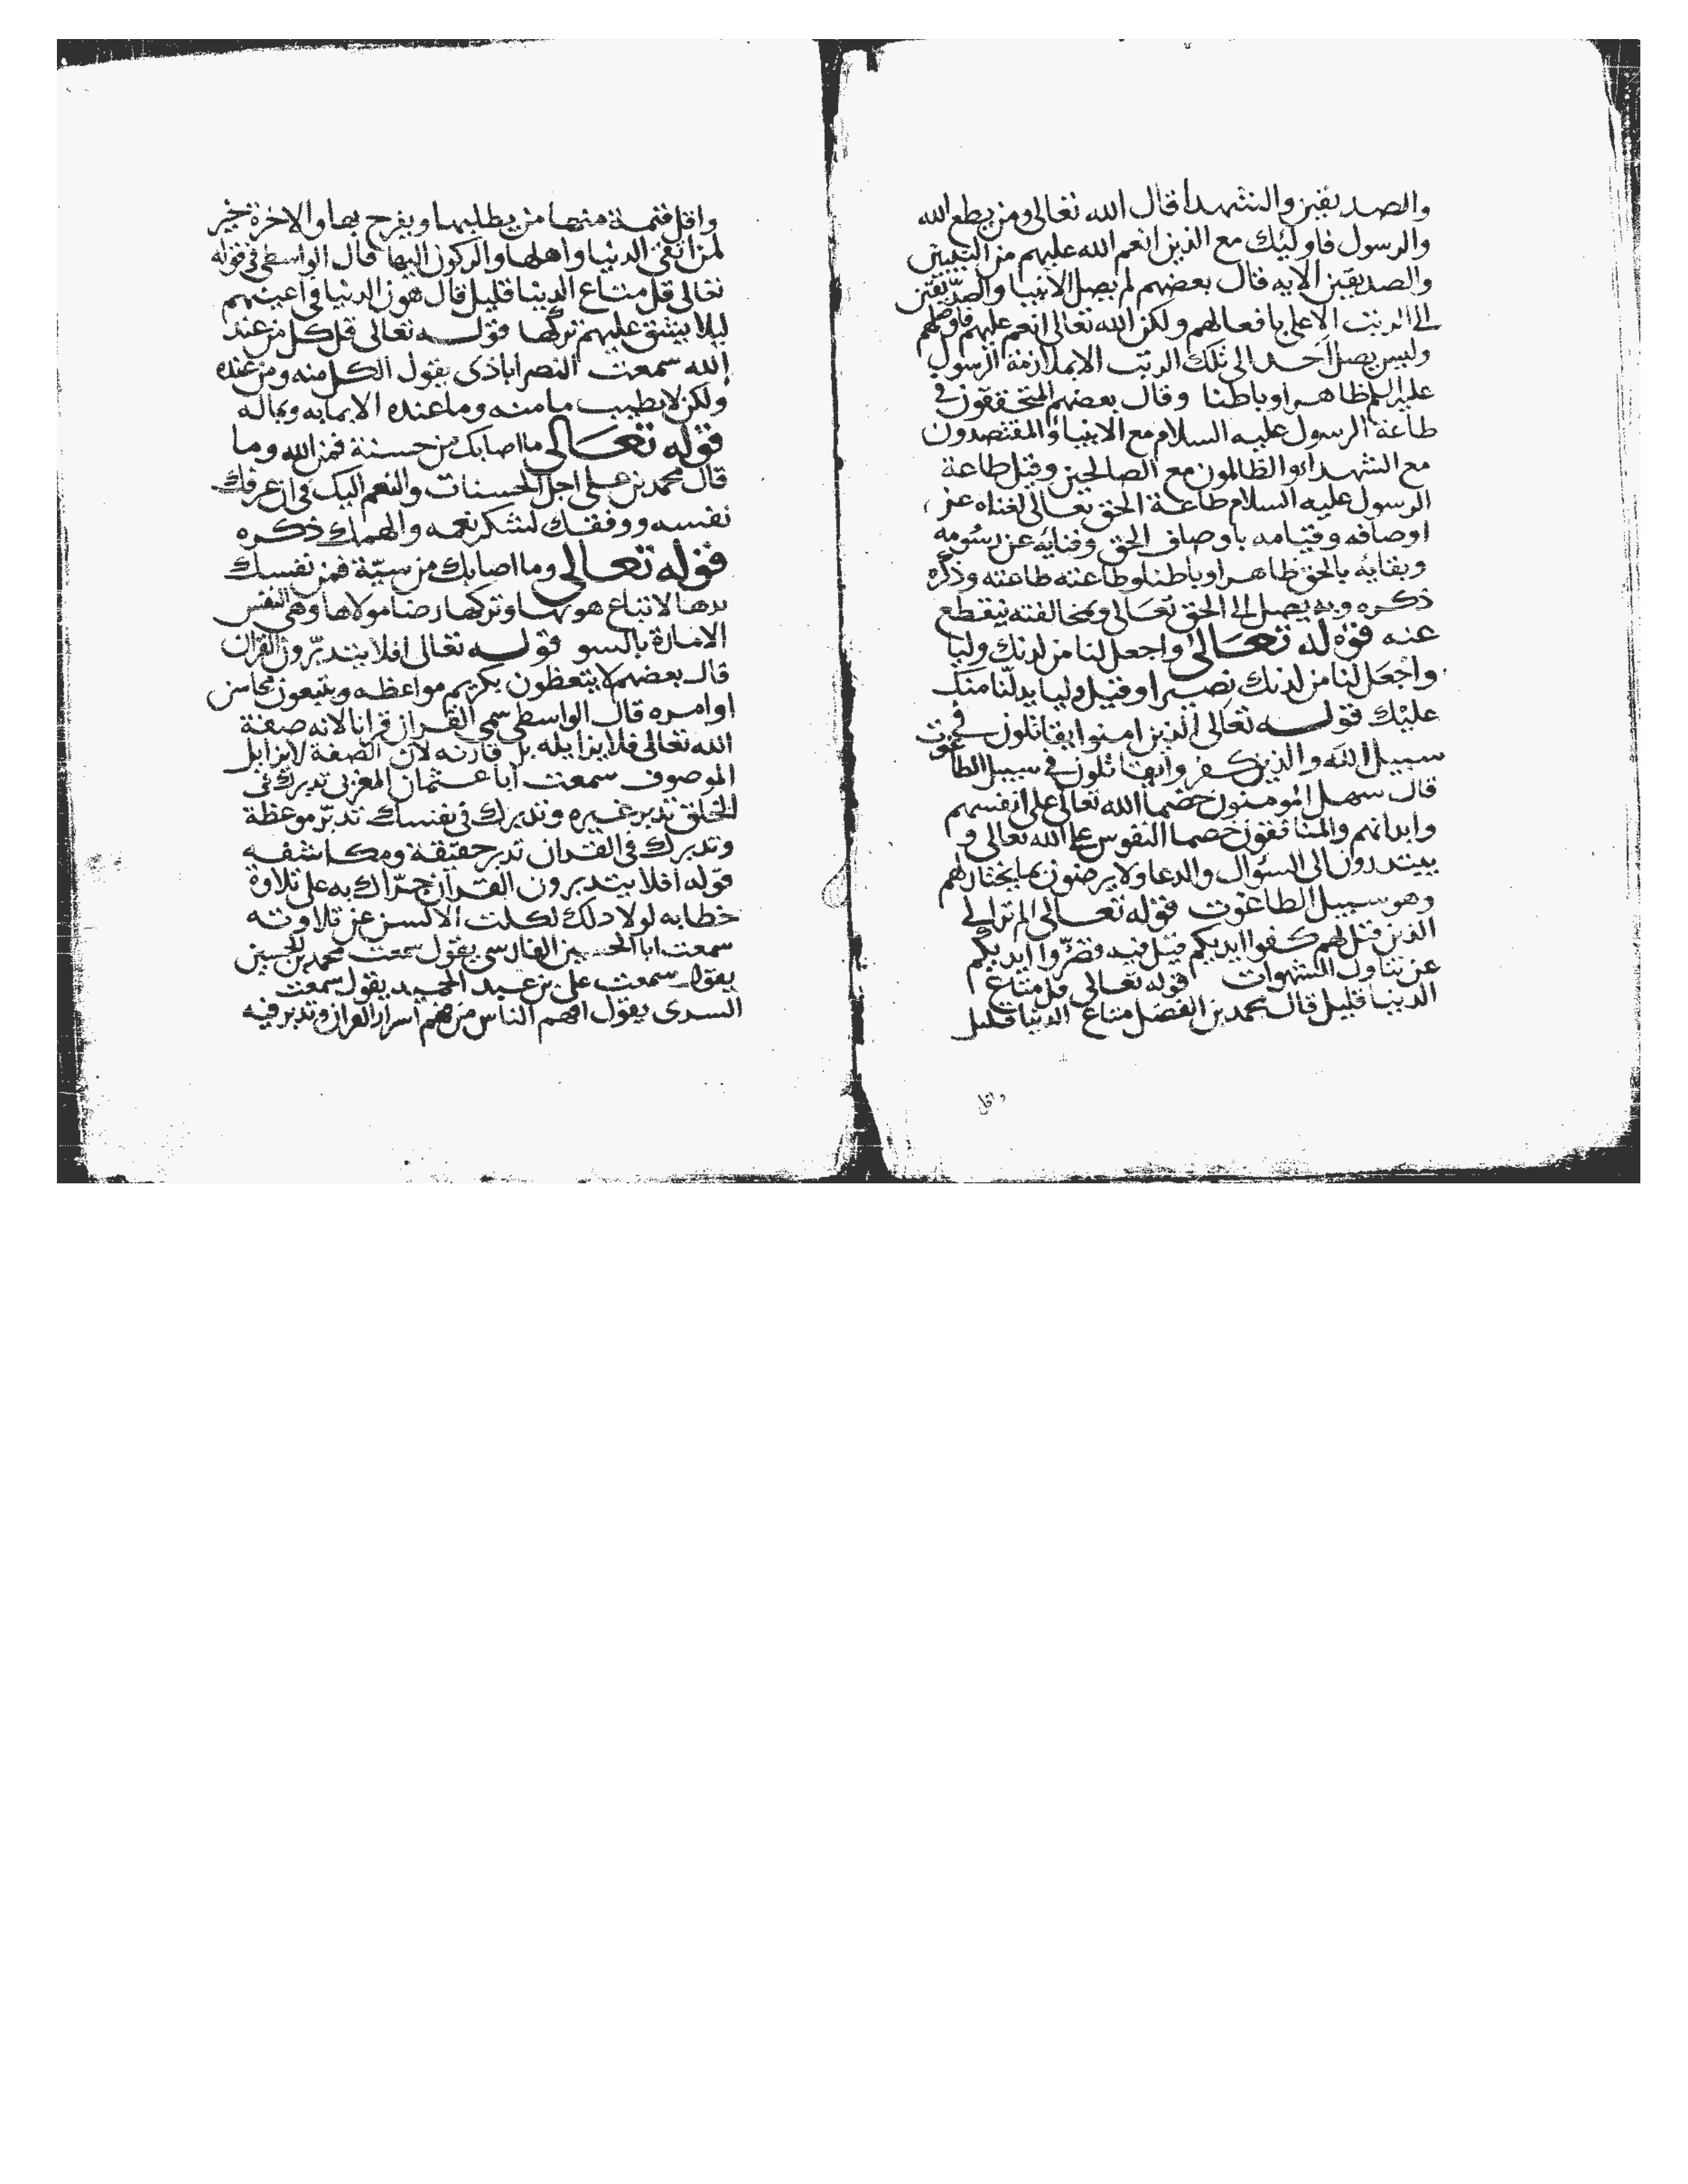 والصديقين والشهدا قال الله تعالى ومن يطع الله
والرسول فاوليك مع الذين انعم الله عليهم من النبيين
والصديقين الايه قال بعضهم لم يصل الانبيا والصديقين
الى الرتب الاعلى بافعالهم ولكن الله تعالى انعم عليهم فاوصلهم
وليس يصل احد الى تلك الرتب الا بملازمة الرسول
عليه السلم ظاهرا وباطنا وقال بعضهم المتحققون في
طاعة الرسول عليه السلام مع الانبيا والمقتصدون
مع الشهداء والظالمون مع الصالحين وقيل طاعة
الرسول عليه السلام طاعة الحق تعالى لفناه عن
اوصافه وقيامه باوصاف الحق وفنايه عن رسومه
وبقايه بالحق ظاهرا وباطنا وطاعته طاعته وذكره
ذكره وبه يصل الى الحق تعالى وبمخالفته ينقطع
عنه قوله تعالى واجعل لنا من لدنك وليا
واجعل لنا من لدنك نصيرا وقيل وليا يدلنا منك
عليك قوله تعالى الذين امنوا يقاتلون في
سبيل الله والذين كفروا يقاتلون في سبيل الطاغوت
قال سهل المومنون خصما الله تعالى على انفسهم
وابدانهم والمنافقون خصما النفوس على الله تعالى و
يبتدرون الى السؤال والدعا ولا يرضون بما يختار لهم
وهو سبيل الطاغوت قوله تعالى الم تر الى
الذين قيل لهم كفوا ايديكم قيل فيه قصروا ايديكم
عن تناول الشهوات قوله تعالى قل متاع
الدنيا قليل قال محمد بن الفضل متاع الدنيا قليل
واقل
واقل قيمة منها من يطلبها ويفرح بها والاخرة خير
لمن اتقى الدنيا واهلها والركون اليها قال الواسطي في قوله
تعالى قل متاع الدنيا قليل قال هون الدنيا في اعينهم
ليلا يشق عليهم تركها قوله تعالى قل كل من عند
الله سمعت النصراباذى يقول الكل منه ومن عنده
ولكن لا يطيب ما منه وما عنده الا بما به وبماله
قوله تعالى ما اصابك من حسنة فمن الله وما
قال محمد بن علي اجل الحسنات والنعم اليك في ان عرفك
نفسه ووفقك لشكر نعمه والهمك ذكره
قوله تعالى وما اصابك من سيئة فمن نفسك
بدها لاتباع هونها وتركها رضا مولاها وهي النفس
الامارة بالسو قوله تعالى افلا يتدبرون القران
قال بعضهم لا يتعظون بكريم مواعظه ويتبعون محاسن
اوامره قال الواسطي سمي القران قرانا لانه صفة
الله تعالى فلا يزايله بل قارنه لان الصفة لا يزايل
الموصوف سمعت ابا عثمان المغربي تدبرك في
الخلق تدبر غيره وتدبرك في نفسك تدبر موعظة
وتدبرك في القران تدبر حقيقة ومكاشفه
قوله افلا يتدبرون القرآن جرّاك به على تلاوة
خطابه لولا ذلك لكلت الالسن عن تلاوته
سمعت ابا الحسين الفارسي يقول سمعت محمد بن الحسين
يقول سمعت علي بن عبد الحميد يقول سمعت
السرى يقول افهم الناس من فهم اسرار القران وتدبر فيه